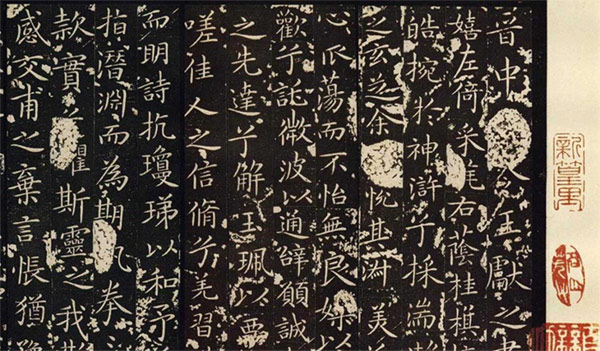 晉中 王獻之書
嬉左倚采旄右蔭桂旗
皓捥於神滸兮採湍瀨
之玄芝余 悅其淑美
心振蕩而不怡無良媒以
歡兮託微波以通辭願誠
之先達兮解玉珮以要
嗟佳人之信脩兮羌習
而明詩抗瓊珶以和予
指潛淵而為期執拳
款實兮懼斯靈之我欺
感交甫之棄言悵猶豫